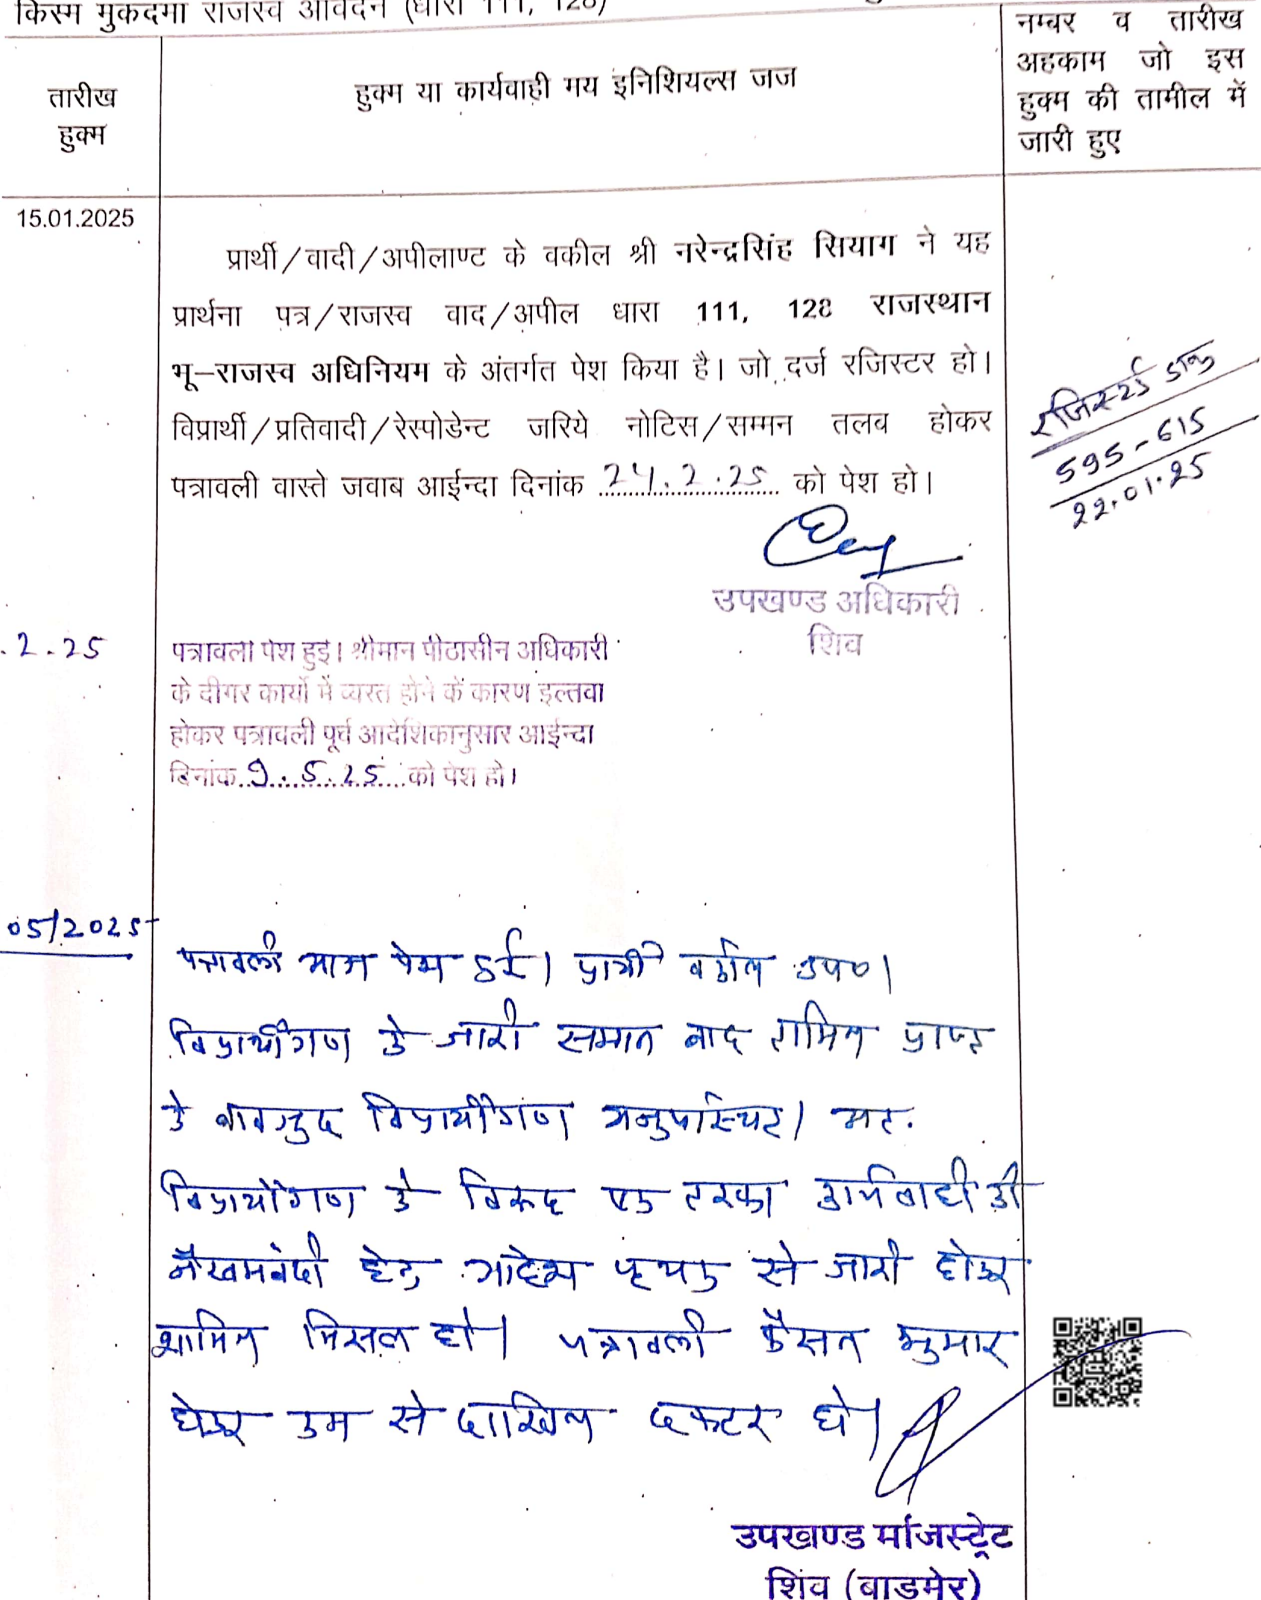 किस्म मुकदमा राजस्व आवेदन (धारा 111, 128)
तारीख
हुक्म
हुक्म या कार्यवाही मय इनिशियल्स जज
नम्बर व तारीख
अहकाम जो इस
हुक्म की तामील में
जारी हुए
15.01.2025
प्रार्थी/वादी/अपीलाण्ट के वकील श्री नरेन्द्रसिंह सियाग ने यह
प्रार्थना पत्र/राजस्व वाद/अपील धारा 111, 128 राजस्थान
भू-राजस्व अधिनियम के अंतर्गत पेश किया है। जो दर्ज रजिस्टर हो।
विप्रार्थी/प्रतिवादी/रेस्पोडेन्ट जरिये नोटिस/सम्मन तलब होकर
पत्रावली वास्ते जवाब आईन्दा दिनांक 24.2.25 को पेश हो।
रजिस्टर्ड डाक
595-615
22.01.25
उपखण्ड अधिकारी
शिव
.2.25
पत्रावली पेश हुई। श्रीमान पीठासीन अधिकारी
के दीगर कार्यो में व्यस्त होने के कारण इल्तवा
होकर पत्रावली पूर्व आदेशिकानुसार आईन्दा
दिनांक 9.5.25 को पेश हो।
05/2025
पत्रावली आज पेश हुई। प्रार्थी वकील उप०।
विप्रार्थीगण के जारी समान बाद तामिल प्राप्त
के बावजुद विप्रार्थीगण अनुपस्थित। अतः
विप्रार्थीगण के विरूद्ध एक तरफा कार्यवाही की
नेखमबंदी हेतु आदेश पृथक से जारी होकर
शामिल मिसल हो। पत्रावली फैसल शुमार
होकर कम से दाखिल दफ्तर हो।
उपखण्ड मजिस्ट्रेट
शिव (बाडमेर)